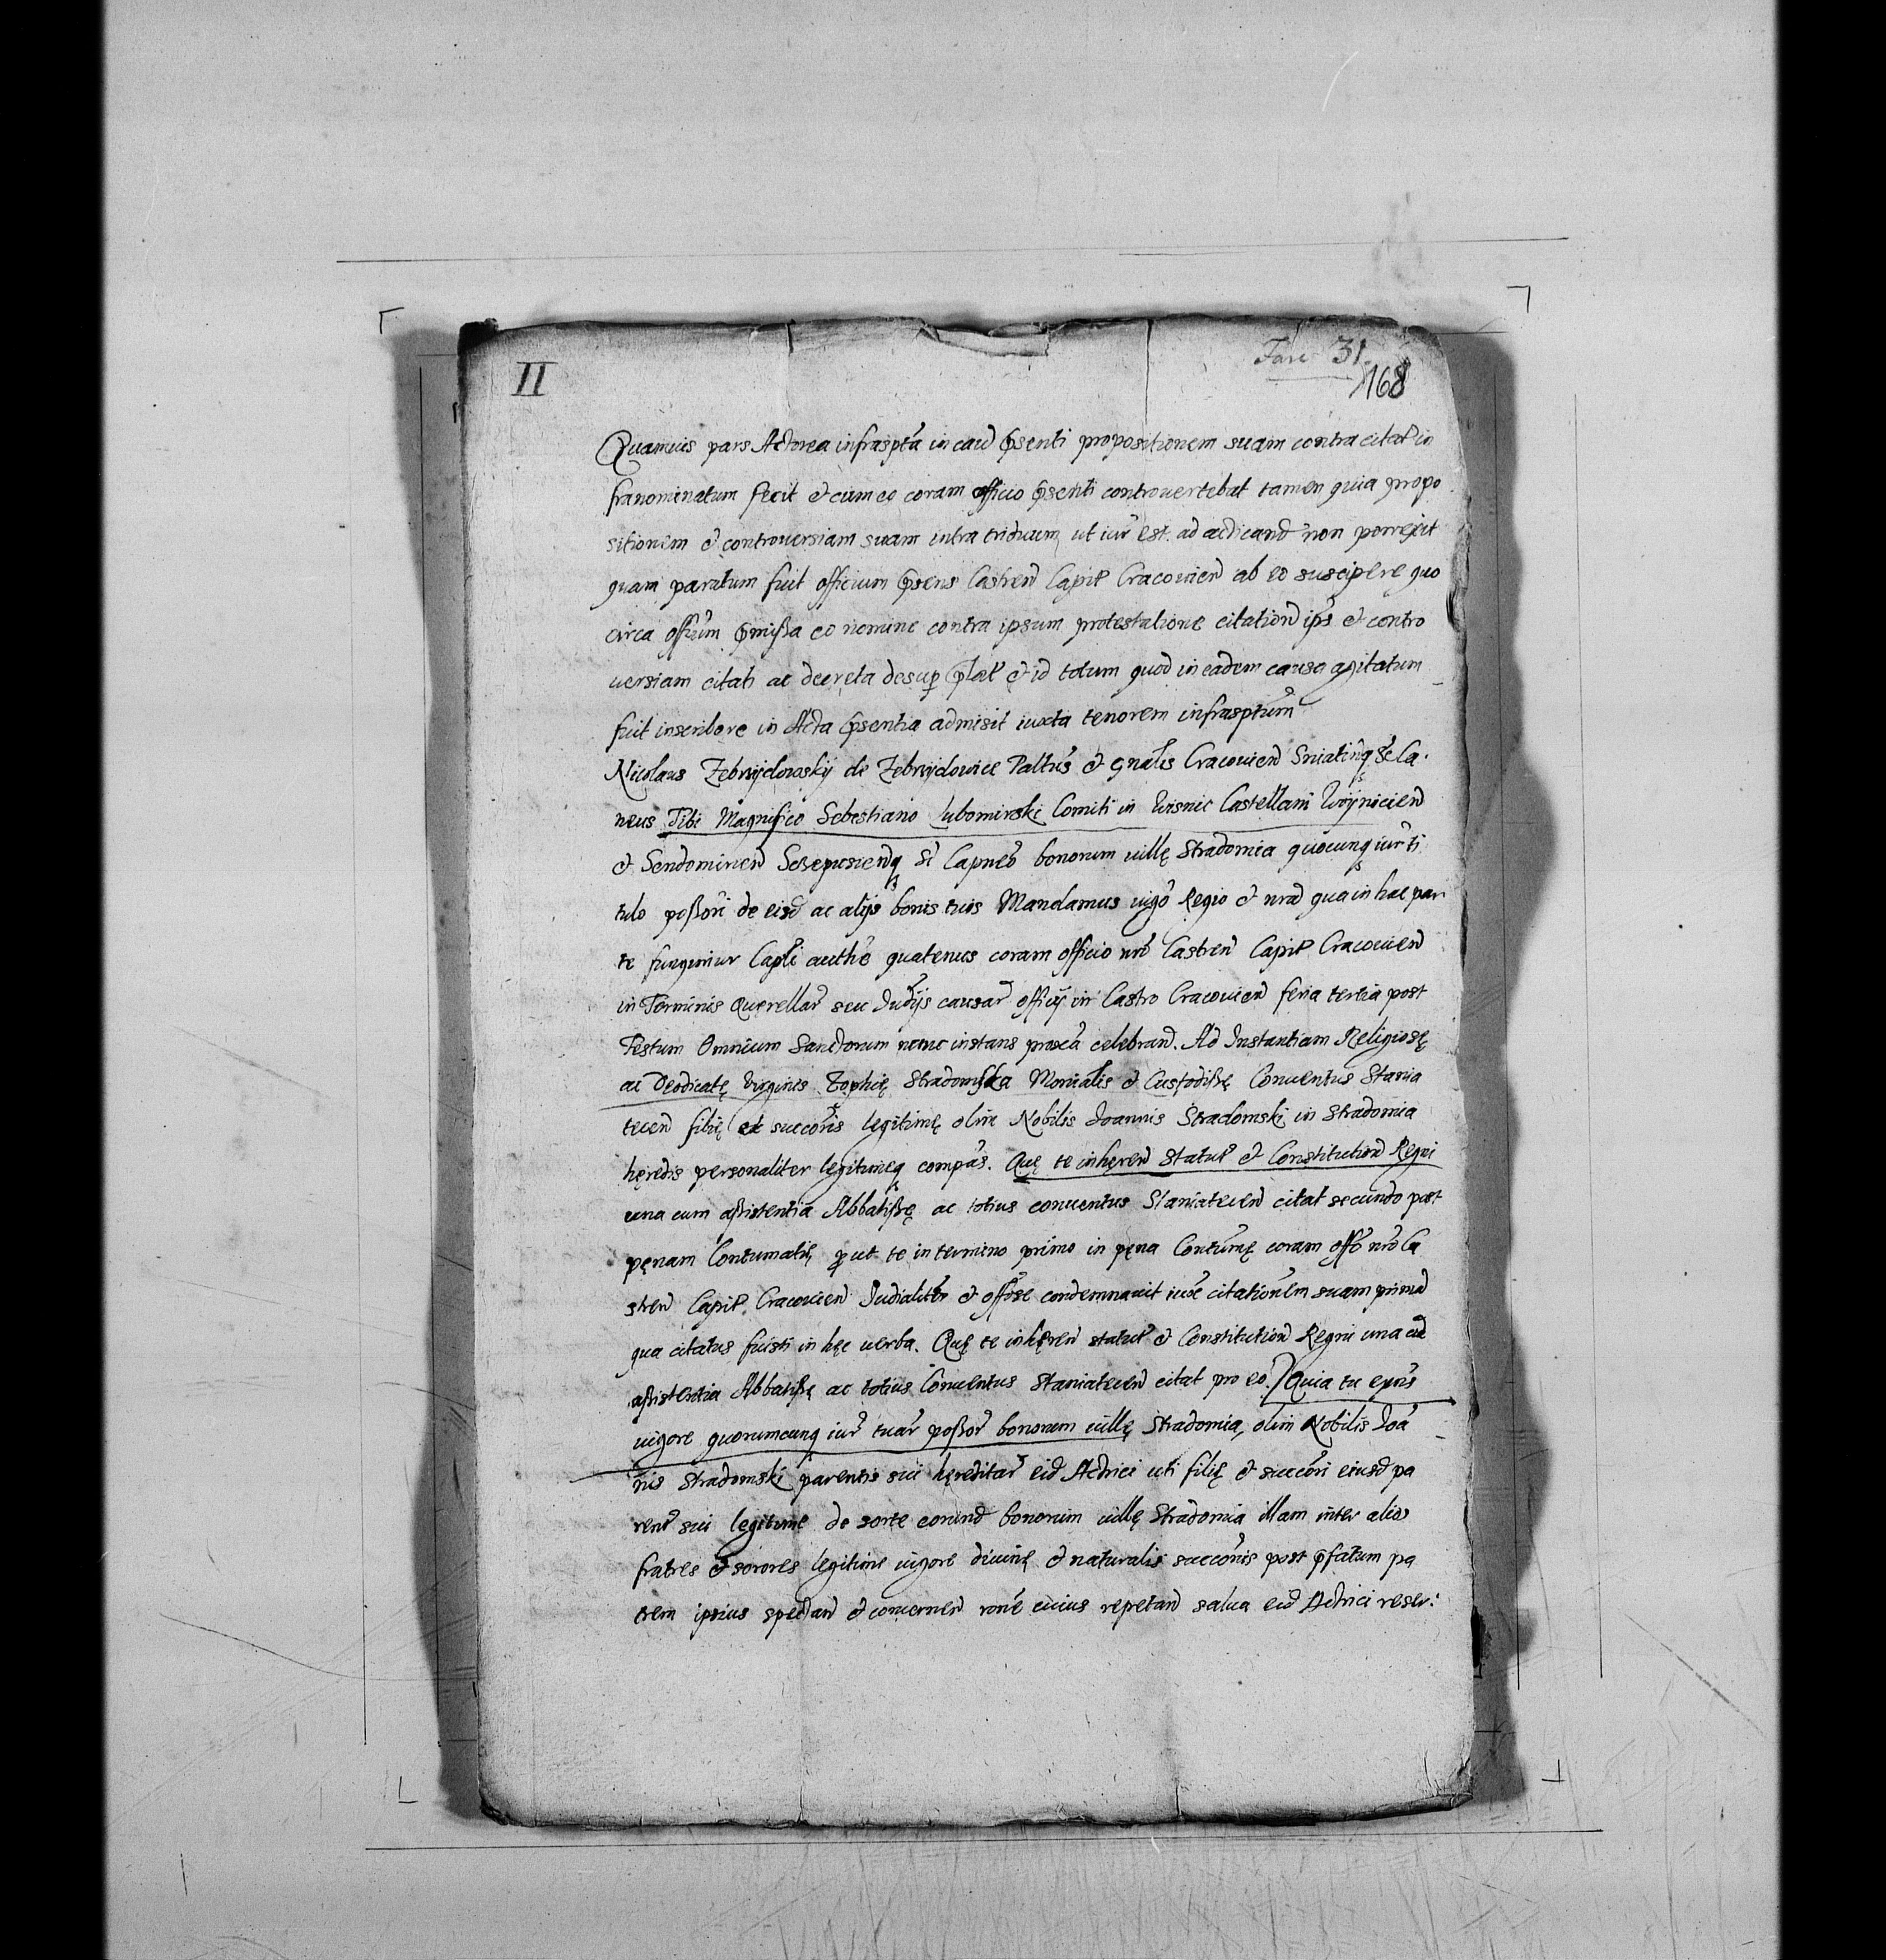 II
Fasc 31
168
Quamuis pars Actorea infraspta in cau pnsenti propositionem suam contra citat in
franominatum fecit et cum eo coram officio pnsenti controuertebat tamen quia propo
sitionem et controuersiam suam intra triduum ut iur est. ad acticand non porrexit
quam paratum fuit officium pnsens Castren Capit Cracouien ab eo suscipere quo
circa offium pmissa eo nomine contra ipsum protestatione citation ips et contro
uersiam citati ac decreta desup lat et id totum quod in eadem causa agitatum
fuit inscribere in Acta pnsentia admisit iuxta tenorem infrasptum
Nicolaus Zebrzydowsky de Zebrzydowice Paltus et gnalis Cracouien Sniatinq Ca
neus Tibi Magnifico Sebastiano Lubomirski Comiti in Wisnic Castellani Woynicien
et Sendomirien Scepusienq Capneo bonorum uillę Stradomia quocunq iur ti
tulo possori de eisd ac alijs bonis tuis Mandamus uigo Regio et nra qua in hac par
te fungimur Capli autho quatenus coram officio nro Castren Capit Cracouien
in Terminis Querellar seu Judijs causar officij in Castro Cracouien feria tertia post
Festum Omnium Sanctorum nunc instans proxa celebran. Ad Instantiam Religiosę
ac Deodicatę Virginis Zophię Stradomska Monialis et Custodissę Conuentus Stania
tecen filię et succoris legitimę olim Nobilis Joannis Stradomski in Stradomia
hęredis personaliter legitimeq compas. Quę te inhęren Statut et Constitution Regni
una cum assistentia Abbatissę ac totius conuentus Staniatecen citat secundo post
pęnam Contumatię put te in termino primo in pęna Contumę coram offo nro Ca
stren Capit. Cracouien Judialiter et offose condemnauit iuxe citationem suam prima
qua citatus fuisti in hęc uerba. Quę te inhęren statut et Constitution Regni una cu
assistentia Abbatissę ac totius Conuentus Staniatecen citat pro eo. Quia tu exns
uigore quorumcunq iur tuar possor bonorum uillę Stradomia, olim Nobilis Joa
nis Stradomski parentis sui hęreditar eid Actrici uti filię et succori eiusd pa
rent sui legitime de sorte eorund bonorum uillę Stradomia illam inter alios
fratres et sorores legitime uigore diuinę et naturalis succonis post pfatum pa
trem ipsius spectan et concernen rone cuius repetan salua eid Actrici reser: